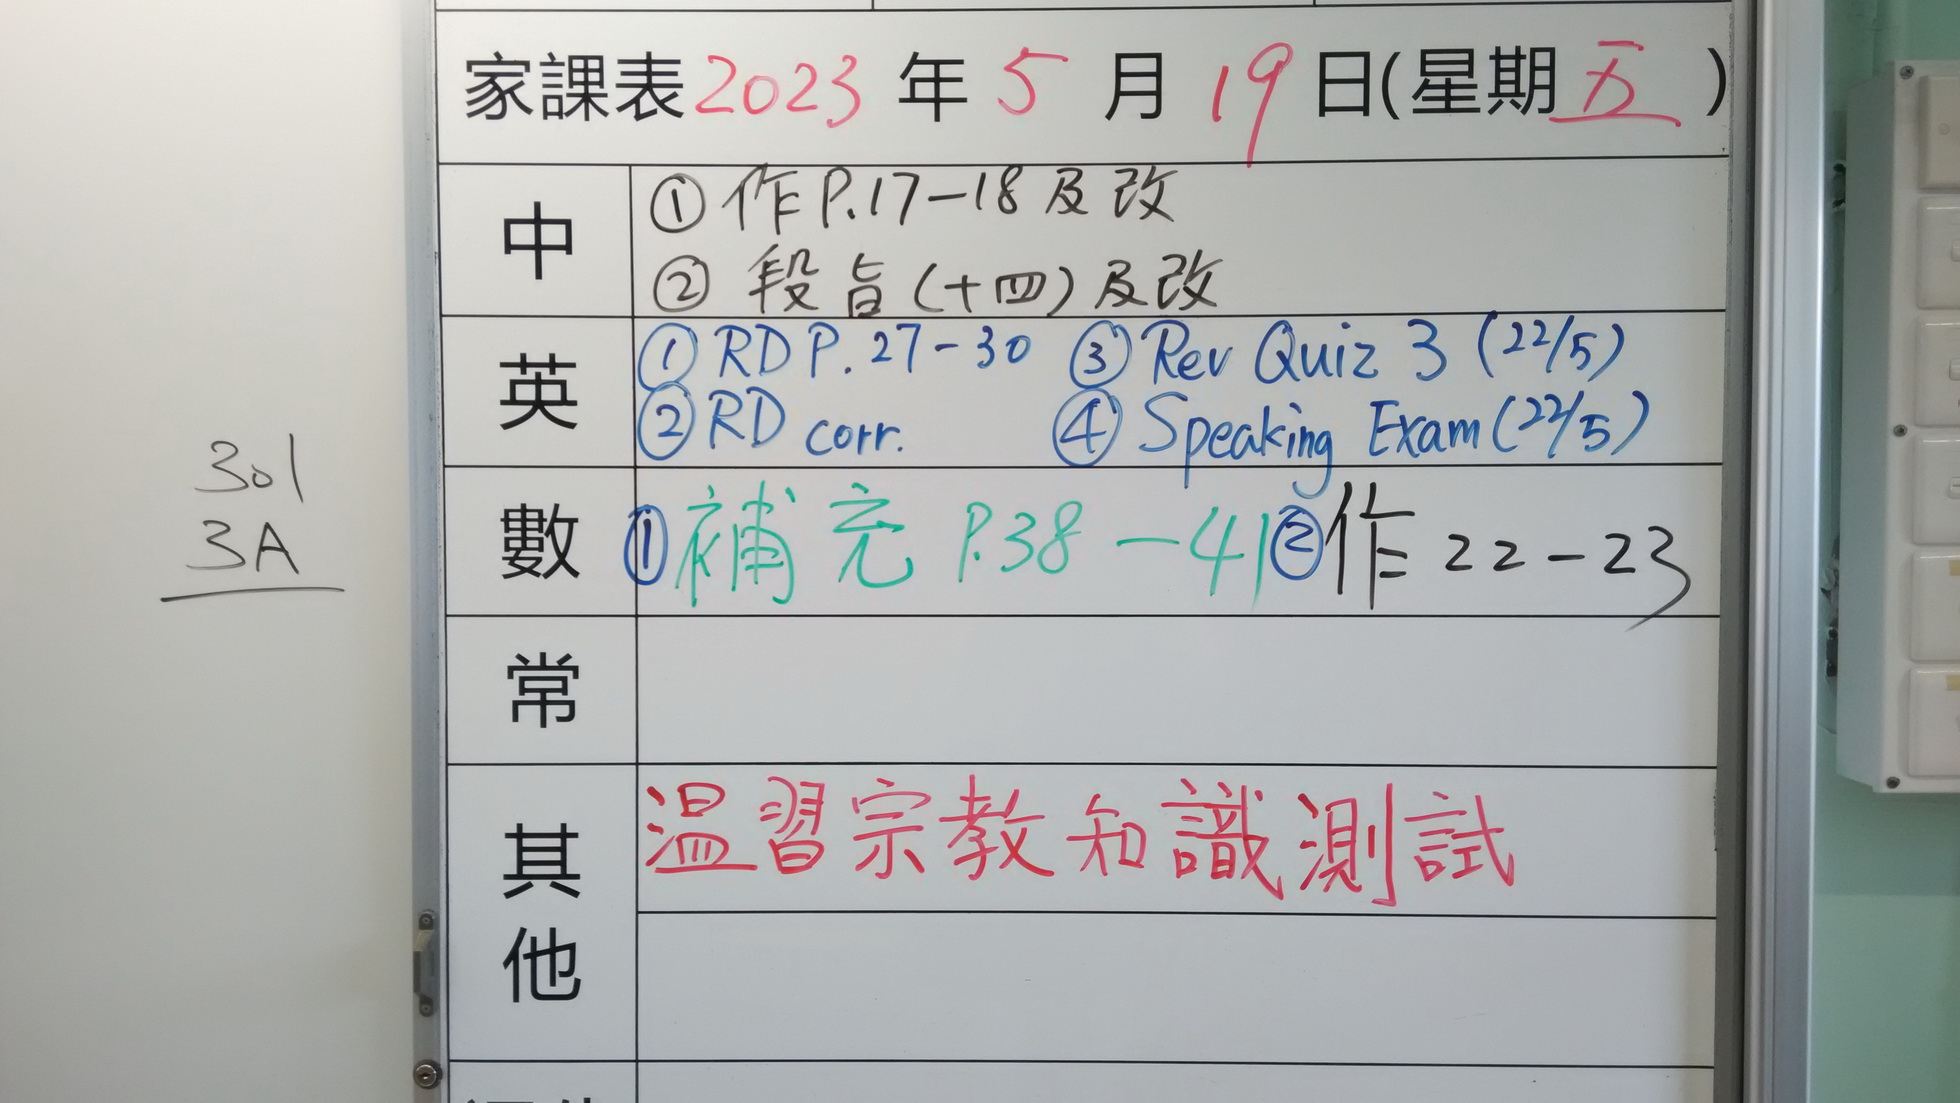 家課表2023年5月19日(星期五)
中
①作P.17-18及改
②段旨(十四)及改
英
①RD P.27-30 ③Rev Quiz 3 (22/5)
②RD corr. ④Speaking Exam (22/5)
301
3A
數
①補充 P.38-41②作22-23
常
其他
溫習宗教知識測試